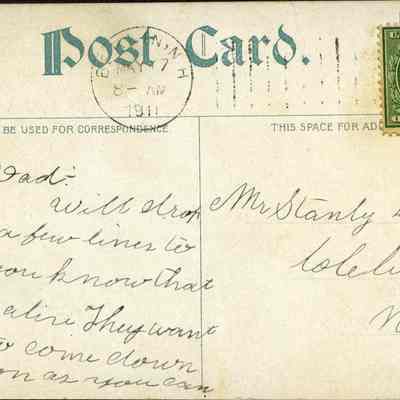 Post Card.
N.H.
MAY 7
8- AM
1911
BE USED FOR CORRESPONDENCE
THIS SPACE FOR AD
Dad:
Will drop
a few lines to
you know that
alive They want
to come down
on as you can
Mr Stanly